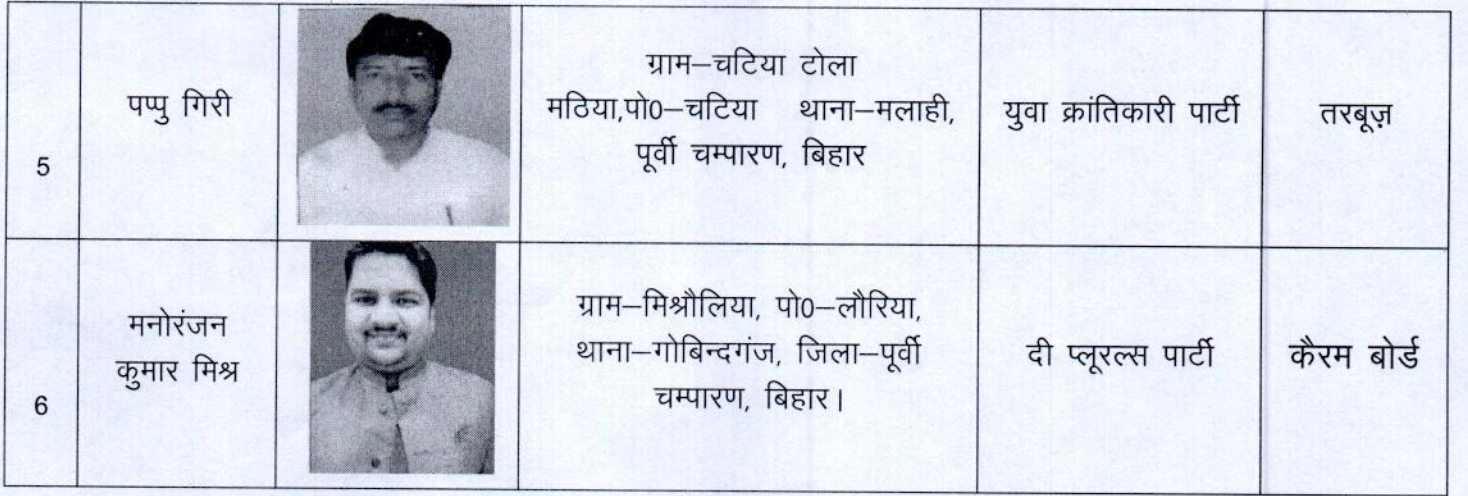 5
पप्पु गिरी
ग्राम–चटिया टोला
मठिया,पो0–चटिया थाना–मलाही,
पूर्वी चम्पारण, बिहार
युवा क्रांतिकारी पार्टी
तरबूज़
6
मनोरंजन
कुमार मिश्र
ग्राम–मिश्रौलिया, पो0–लौरिया,
थाना–गोबिन्दगंज, जिला–पूर्वी
चम्पारण, बिहार।
दी प्लूरल्स पार्टी
कैरम बोर्ड